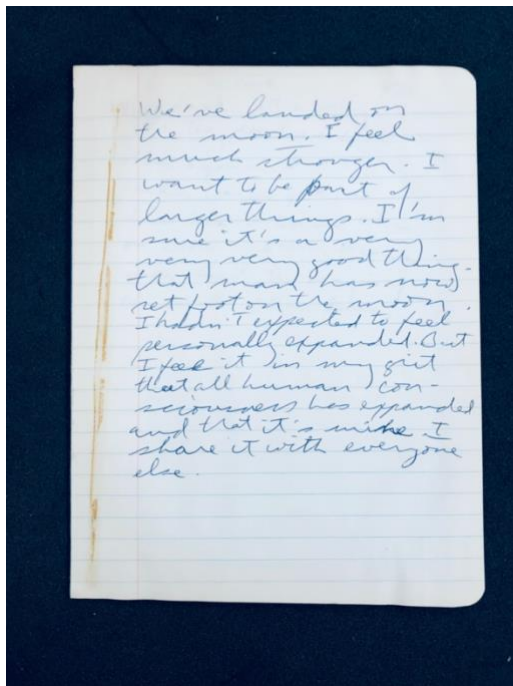 We've landed on
the moon. I feel
much stronger. I
want to be part of
larger things. I'm
sure it's a very
very very good thing
that man has now
set foot on the moon.
I hadn't expected to feel
personally expanded. But
I feel it in my gut
that all human con-
sciousness has expanded
and that it's mine. I
share it with everyone
else.